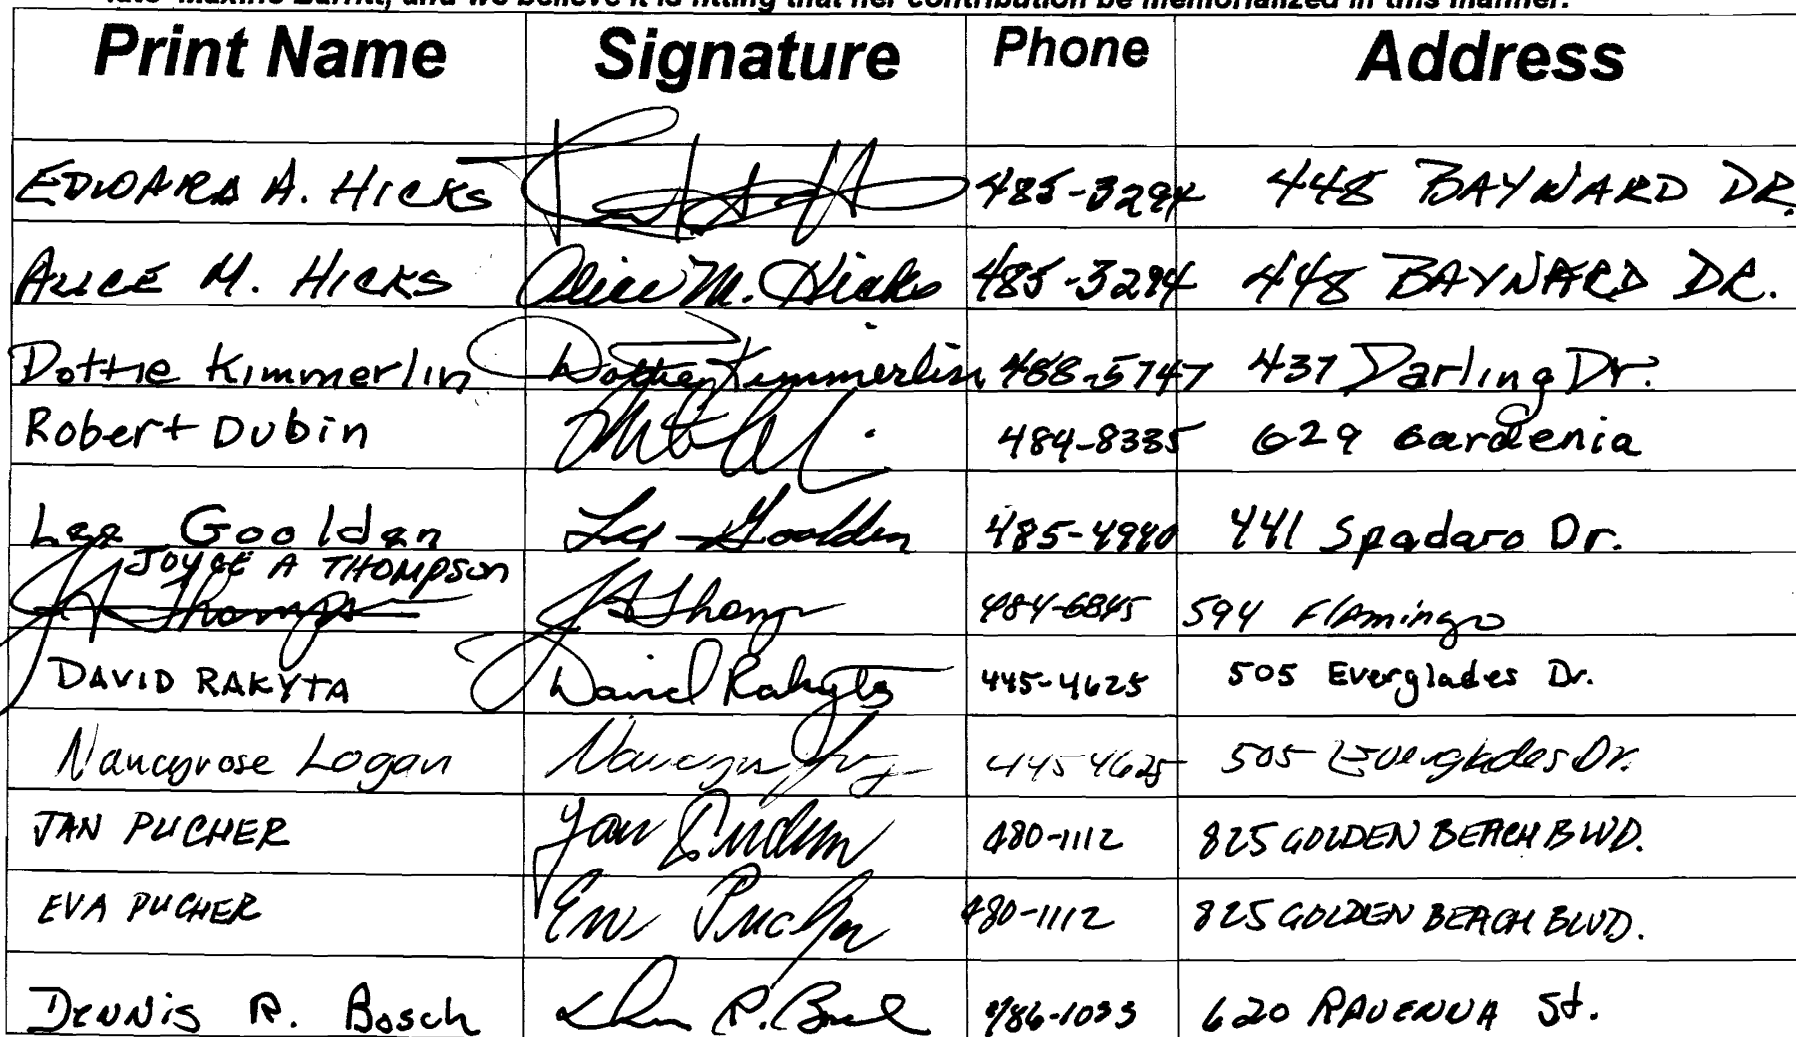 late Maxine Barritt, and we believe it is fitting that her contribution be memorialized in this manner.
Print Name Signature Phone Address
EDWARD A. HICKS 485-3294 448 BAYNARD DR.
ALICE M. HICKS Alice M. Hicks 485-3294 448 BAYNARD DR.
Dottie Kimmerlin Dottie Kimmerlin 488-5747 437 Darling Dr.
Robert Dubin 484-8335 629 Gardenia
Lee Goolden Lee Goolden 485-4990 441 Spadaro Dr.
JOYCE A THOMPSON
JA Thomp JA Thomp 484-6845 594 Flamingo
DAVID RAKYTA David Rakyta 445-4625 505 Everglades Dr.
Nancyrose Logan 445 4625 505 Everglades Dr.
JAN PUCHER Jan Pucher 480-1112 825 GOLDEN BEACH BLVD.
EVA PUCHER Eva Pucher 480-1112 825 GOLDEN BEACH BLVD.
Dennis R. Bosch 486-1033 620 RAVENNA St.